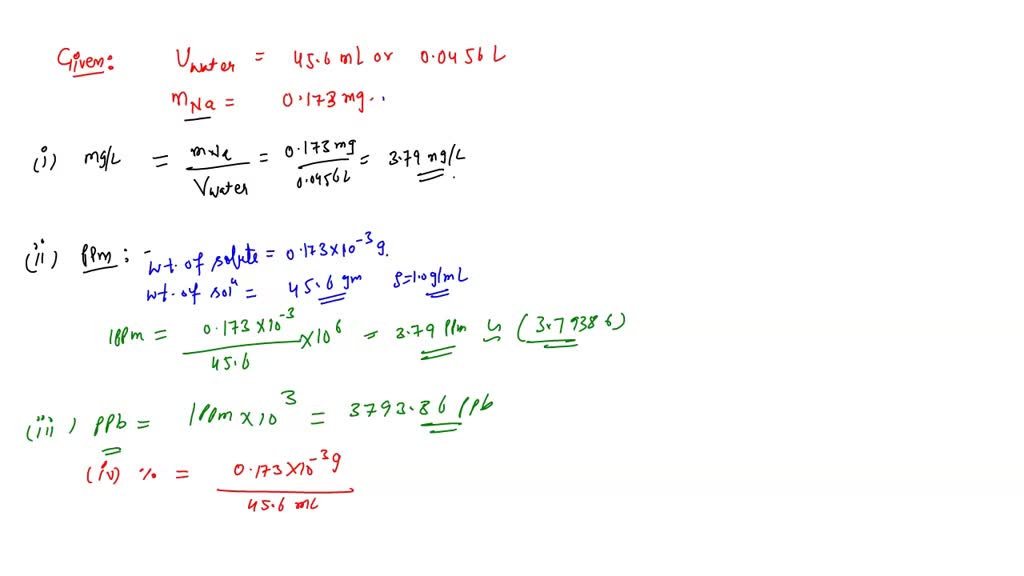 Given: Vwater = 45.6 mL or 0.0456 L
mNa = 0.173 mg.
(i) mg/L = mNa / Vwater = 0.173 mg / 0.0456 L = 3.79 mg/L.
(ii) PPm: -
wt. of solute = 0.173 × 10⁻³ g.
wt. of solⁿ = 45.6 gm ρ = 1.0 g/mL
1PPm = 0.173 × 10⁻³ / 45.6 × 10⁶ = 3.79 PPm ≈ (3.79386)
(iii) PPb = 1PPm × 10³ = 3793.86 PPb
(iv) % = 0.173 × 10⁻³ g / 45.6 mL